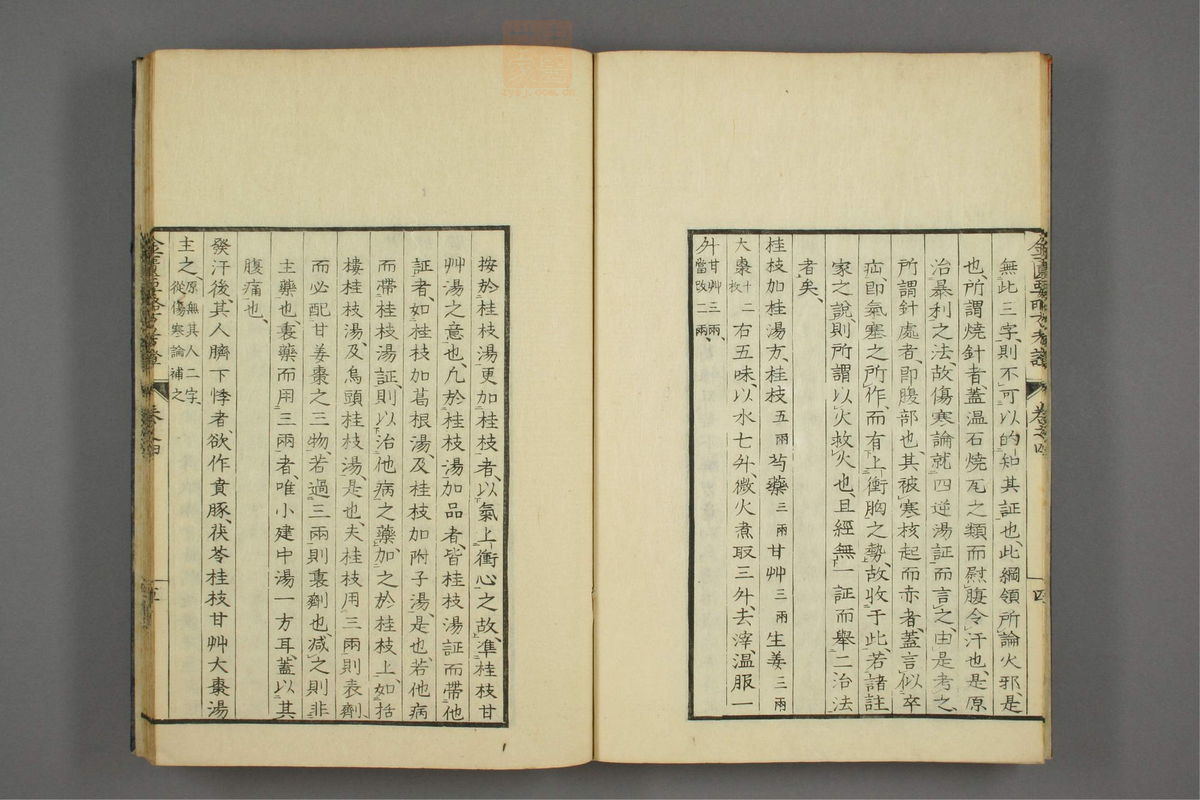 無此三字、則不可以的知其証也、此綱領所論火邪、是
也、所謂焼針者、蓋温石焼瓦之類而慰腹令汗也、是原
治暴利之法、故傷寒論就四逆湯証而言之、由是考之、
所謂針處者、即腹部也、其被寒核起而赤者、蓋言似卒
疝、即氣塞之所作、而有上衝胸之勢、故收于此、若諸註
家之說、則所謂以火救火也、且經無一証而舉二治法
者矣、
桂枝加桂湯方、桂枝五兩芍藥三兩甘艸三兩生姜三兩
大棗十二枚右五味、以水七升、微火煮取三升、去滓温服一
升甘艸三兩、當改二兩、
按於桂枝湯更加桂枝者、以氣上衝心之故、準桂枝甘
艸湯之意也、凡於桂枝湯加品者、皆桂枝湯証而帶他
証者、如桂枝加葛根湯、及桂枝加附子湯、是也、若他病
而帶桂枝湯証、則以治他病之藥、加之於桂枝上、如括
樓桂枝湯、及烏頭桂枝湯、是也、夫桂枝用三兩、則表劑
而必配甘姜棗之三物、若過三兩則裏劑也、減之則非
主藥也、裏藥而用三兩者、唯小建中湯一方耳、蓋以其
腹痛也、
發汗後、其人臍下悸者、欲作賁豚、茯苓桂枝甘艸大棗湯
主之、原無其人二字、從傷寒論補之
卷之四